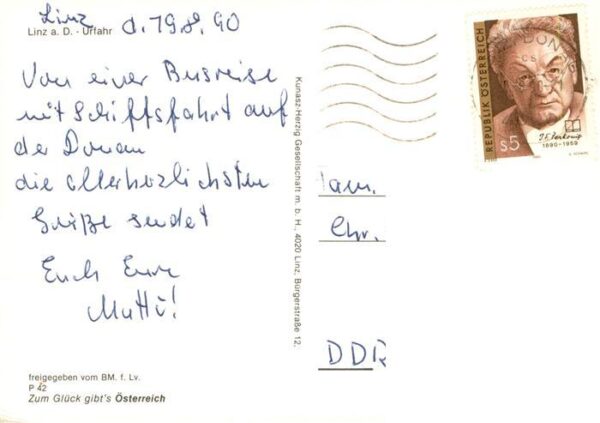 Linz d. 19.8.90
Linz a. D. - Urfahr
Von einer Busreise
mit Schiffsfahrt auf
der Donau
die allerherzlichsten
Grüße sendet
Euch Eure
Mutti!
freigegeben vom BM. f. Lv.
P 42
Zum Glück gibt's Österreich
Kunasz-Herzig Gesellschaft m. b. H., 4020 Linz, Bürgerstraße 12.
Fam.
Chr.
DDR
REPUBLIK ÖSTERREICH
S5
1890-1959
DON